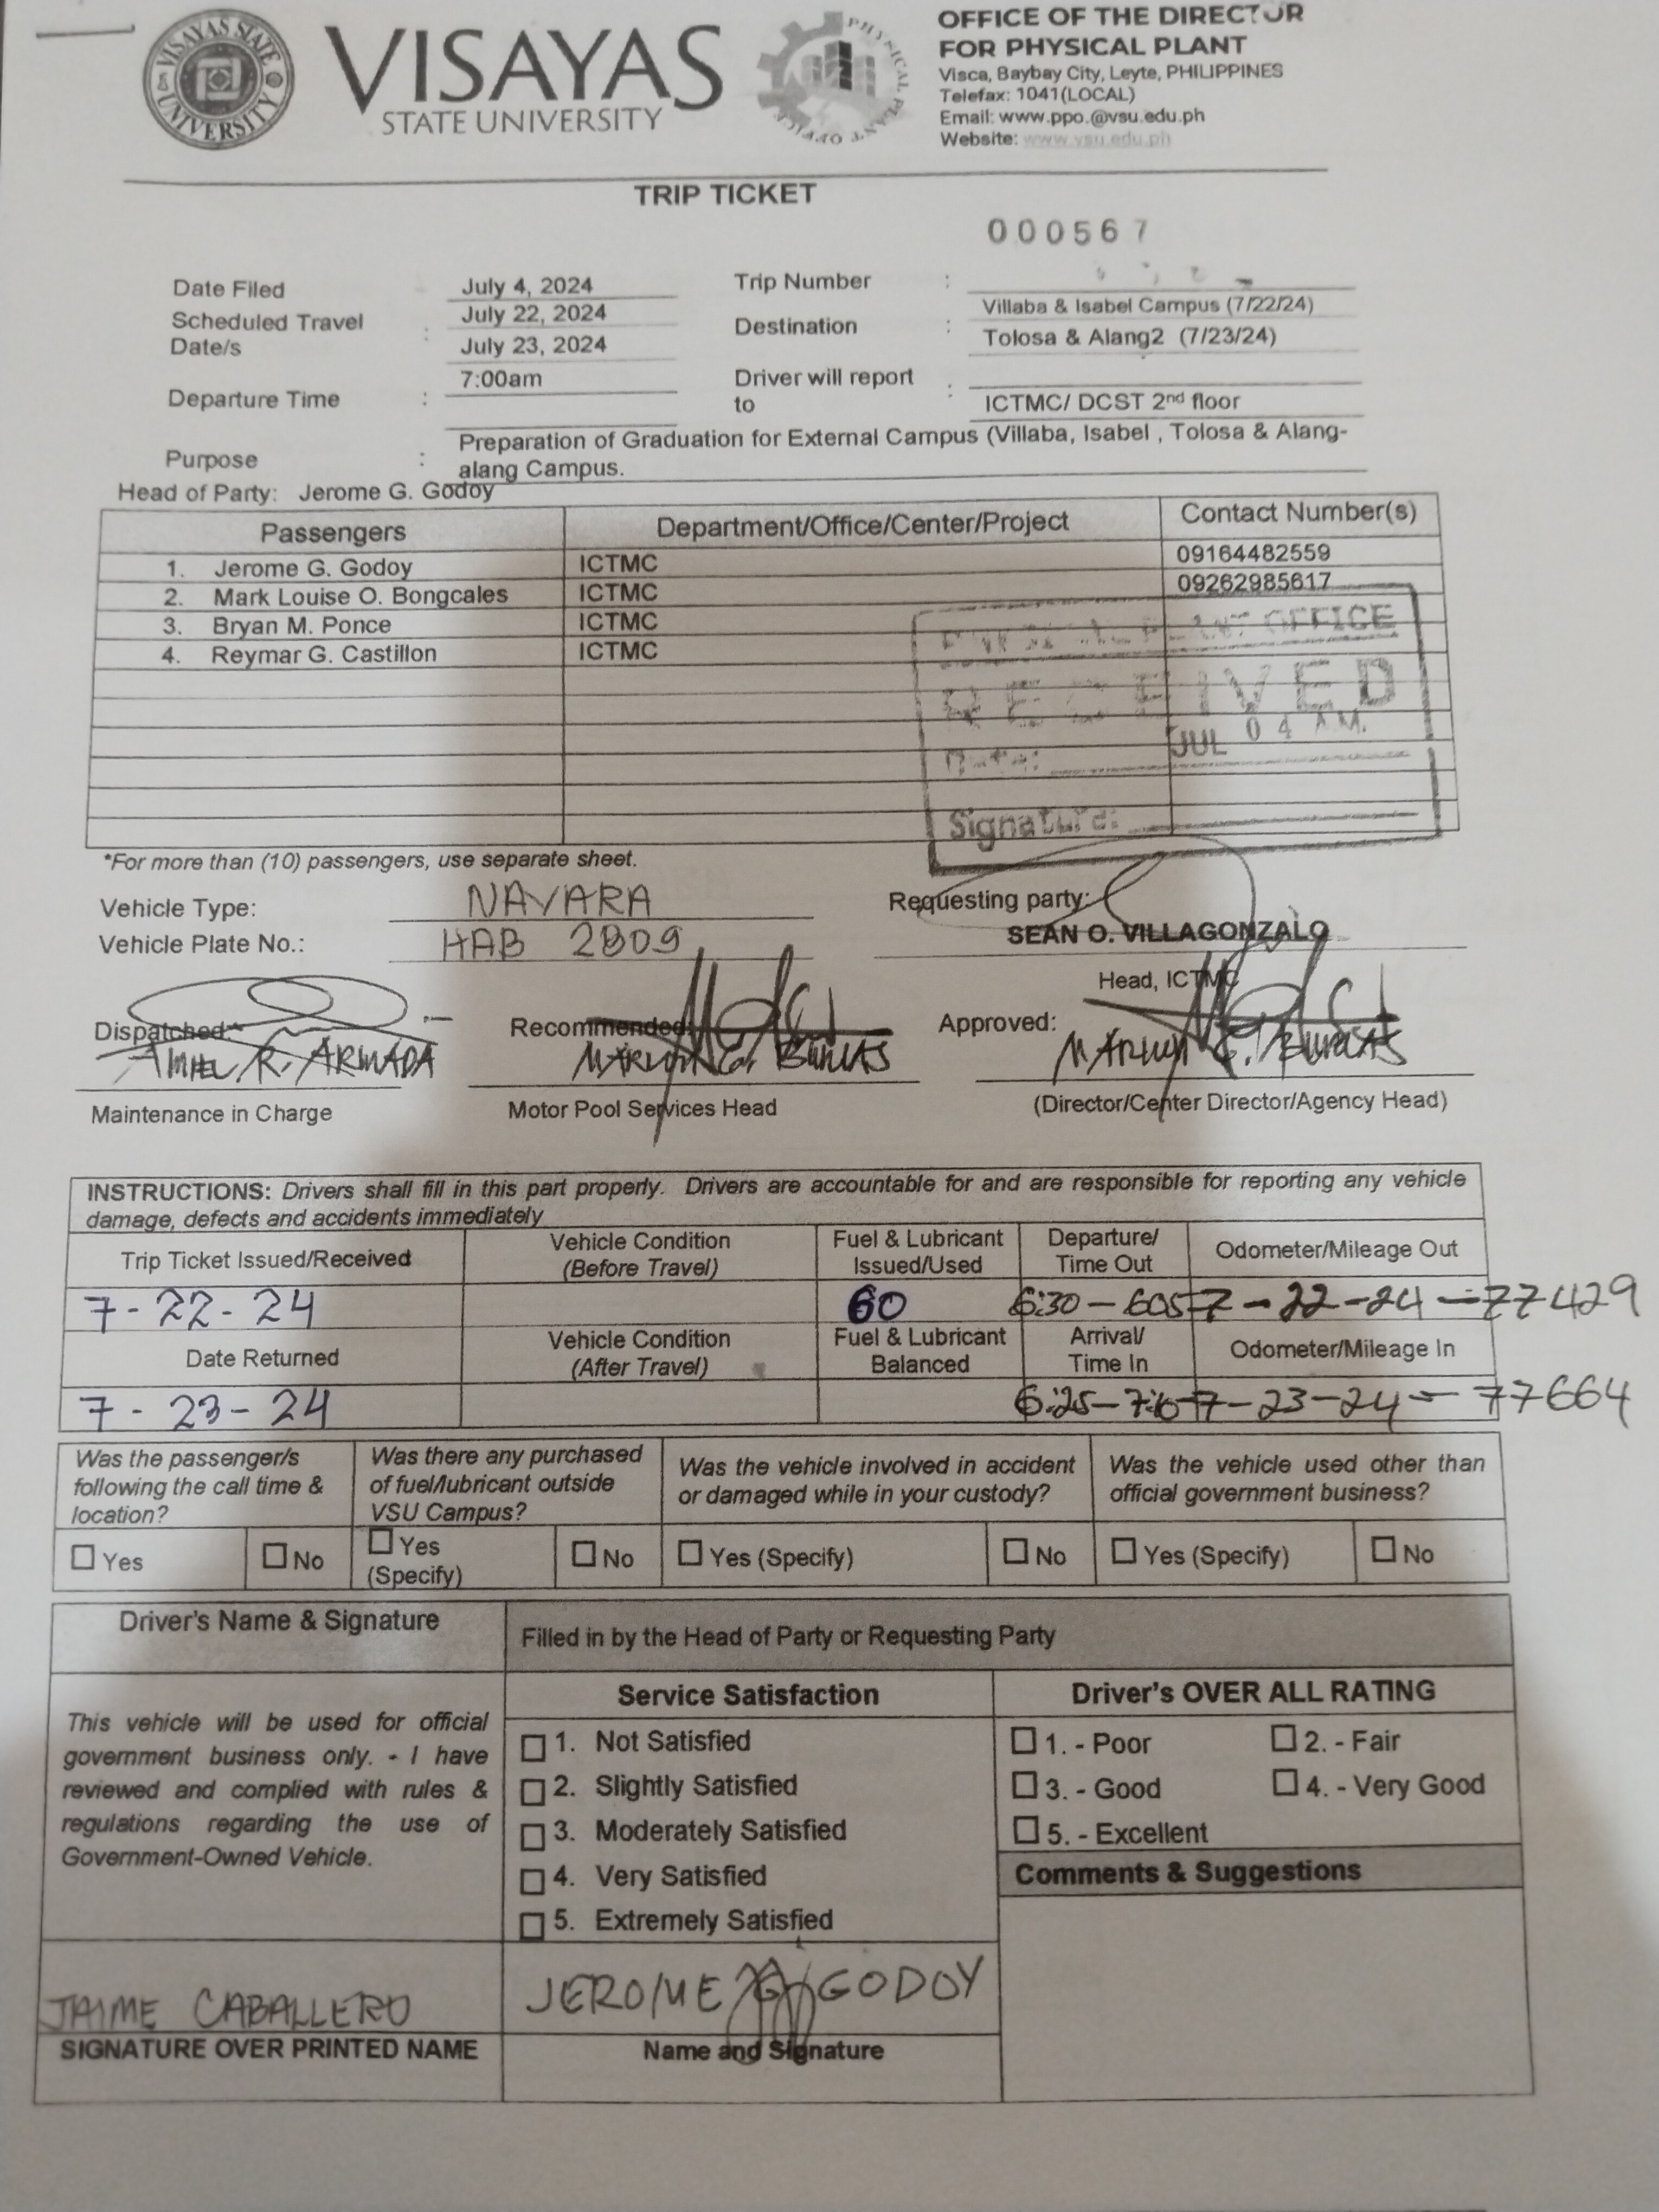 VISAYAS STATE UNIVERSITY
VISAYAS
STATE UNIVERSITY
PHYSICAL PLANT OFFICE
OFFICE OF THE DIRECTOR
FOR PHYSICAL PLANT
Visca, Baybay City, Leyte, PHILIPPINES
Telefax: 1041(LOCAL)
Email: www.ppo.@vsu.edu.ph
Website: www.vsu.edu.ph
TRIP TICKET
000567
Date Filed July 4, 2024 Trip Number :
Scheduled Travel Date/s : July 22, 2024 July 23, 2024 Destination : Villaba & Isabel Campus (7/22/24) Tolosa & Alang2 (7/23/24)
Departure Time : 7:00am Driver will report to : ICTMC/ DCST 2nd floor
Purpose : Preparation of Graduation for External Campus (Villaba, Isabel , Tolosa & Alang-
alang Campus.
Head of Party: Jerome G. Godoy
Passengers Department/Office/Center/Project Contact Number(s)
1. Jerome G. Godoy ICTMC 09164482559
2. Mark Louise O. Bongcales ICTMC 09262985617
3. Bryan M. Ponce ICTMC
4. Reymar G. Castillon ICTMC
PHYSICAL PLANT OFFICE
RECEIVED
JUL 04 A.M.
Date:
Signature:
*For more than (10) passengers, use separate sheet.
Vehicle Type: NAVARA Requesting party:
Vehicle Plate No.: HAB 2809 SEAN O. VILLAGONZALO
Head, ICTMC
Dispatched: Recommended: Approved:
R. ARMADA
Maintenance in Charge Motor Pool Services Head (Director/Center Director/Agency Head)
INSTRUCTIONS: Drivers shall fill in this part properly. Drivers are accountable for and are responsible for reporting any vehicle
damage, defects and accidents immediately
Trip Ticket Issued/Received Vehicle Condition (Before Travel) Fuel & Lubricant Issued/Used Departure/ Time Out Odometer/Mileage Out
7-22-24 60 6:30 - 605 7-22-24 - 77429
Date Returned Vehicle Condition (After Travel) Fuel & Lubricant Balanced Arrival/ Time In Odometer/Mileage In
7-23-24 6:25 - 7-23-24 - 77664
Was the passenger/s following the call time & location? Was there any purchased of fuel/lubricant outside VSU Campus? Was the vehicle involved in accident or damaged while in your custody? Was the vehicle used other than official government business?
Yes No Yes (Specify) No Yes (Specify) No Yes (Specify) No
Driver's Name & Signature Filled in by the Head of Party or Requesting Party
Service Satisfaction Driver's OVER ALL RATING
This vehicle will be used for official
government business only. - I have
reviewed and complied with rules &
regulations regarding the use of
Government-Owned Vehicle.
1. Not Satisfied
2. Slightly Satisfied
3. Moderately Satisfied
4. Very Satisfied
5. Extremely Satisfied
1. - Poor 2. - Fair
3. - Good 4. - Very Good
5. - Excellent
Comments & Suggestions
JAIME CABALLERO JEROME G. GODOY
SIGNATURE OVER PRINTED NAME Name and Signature